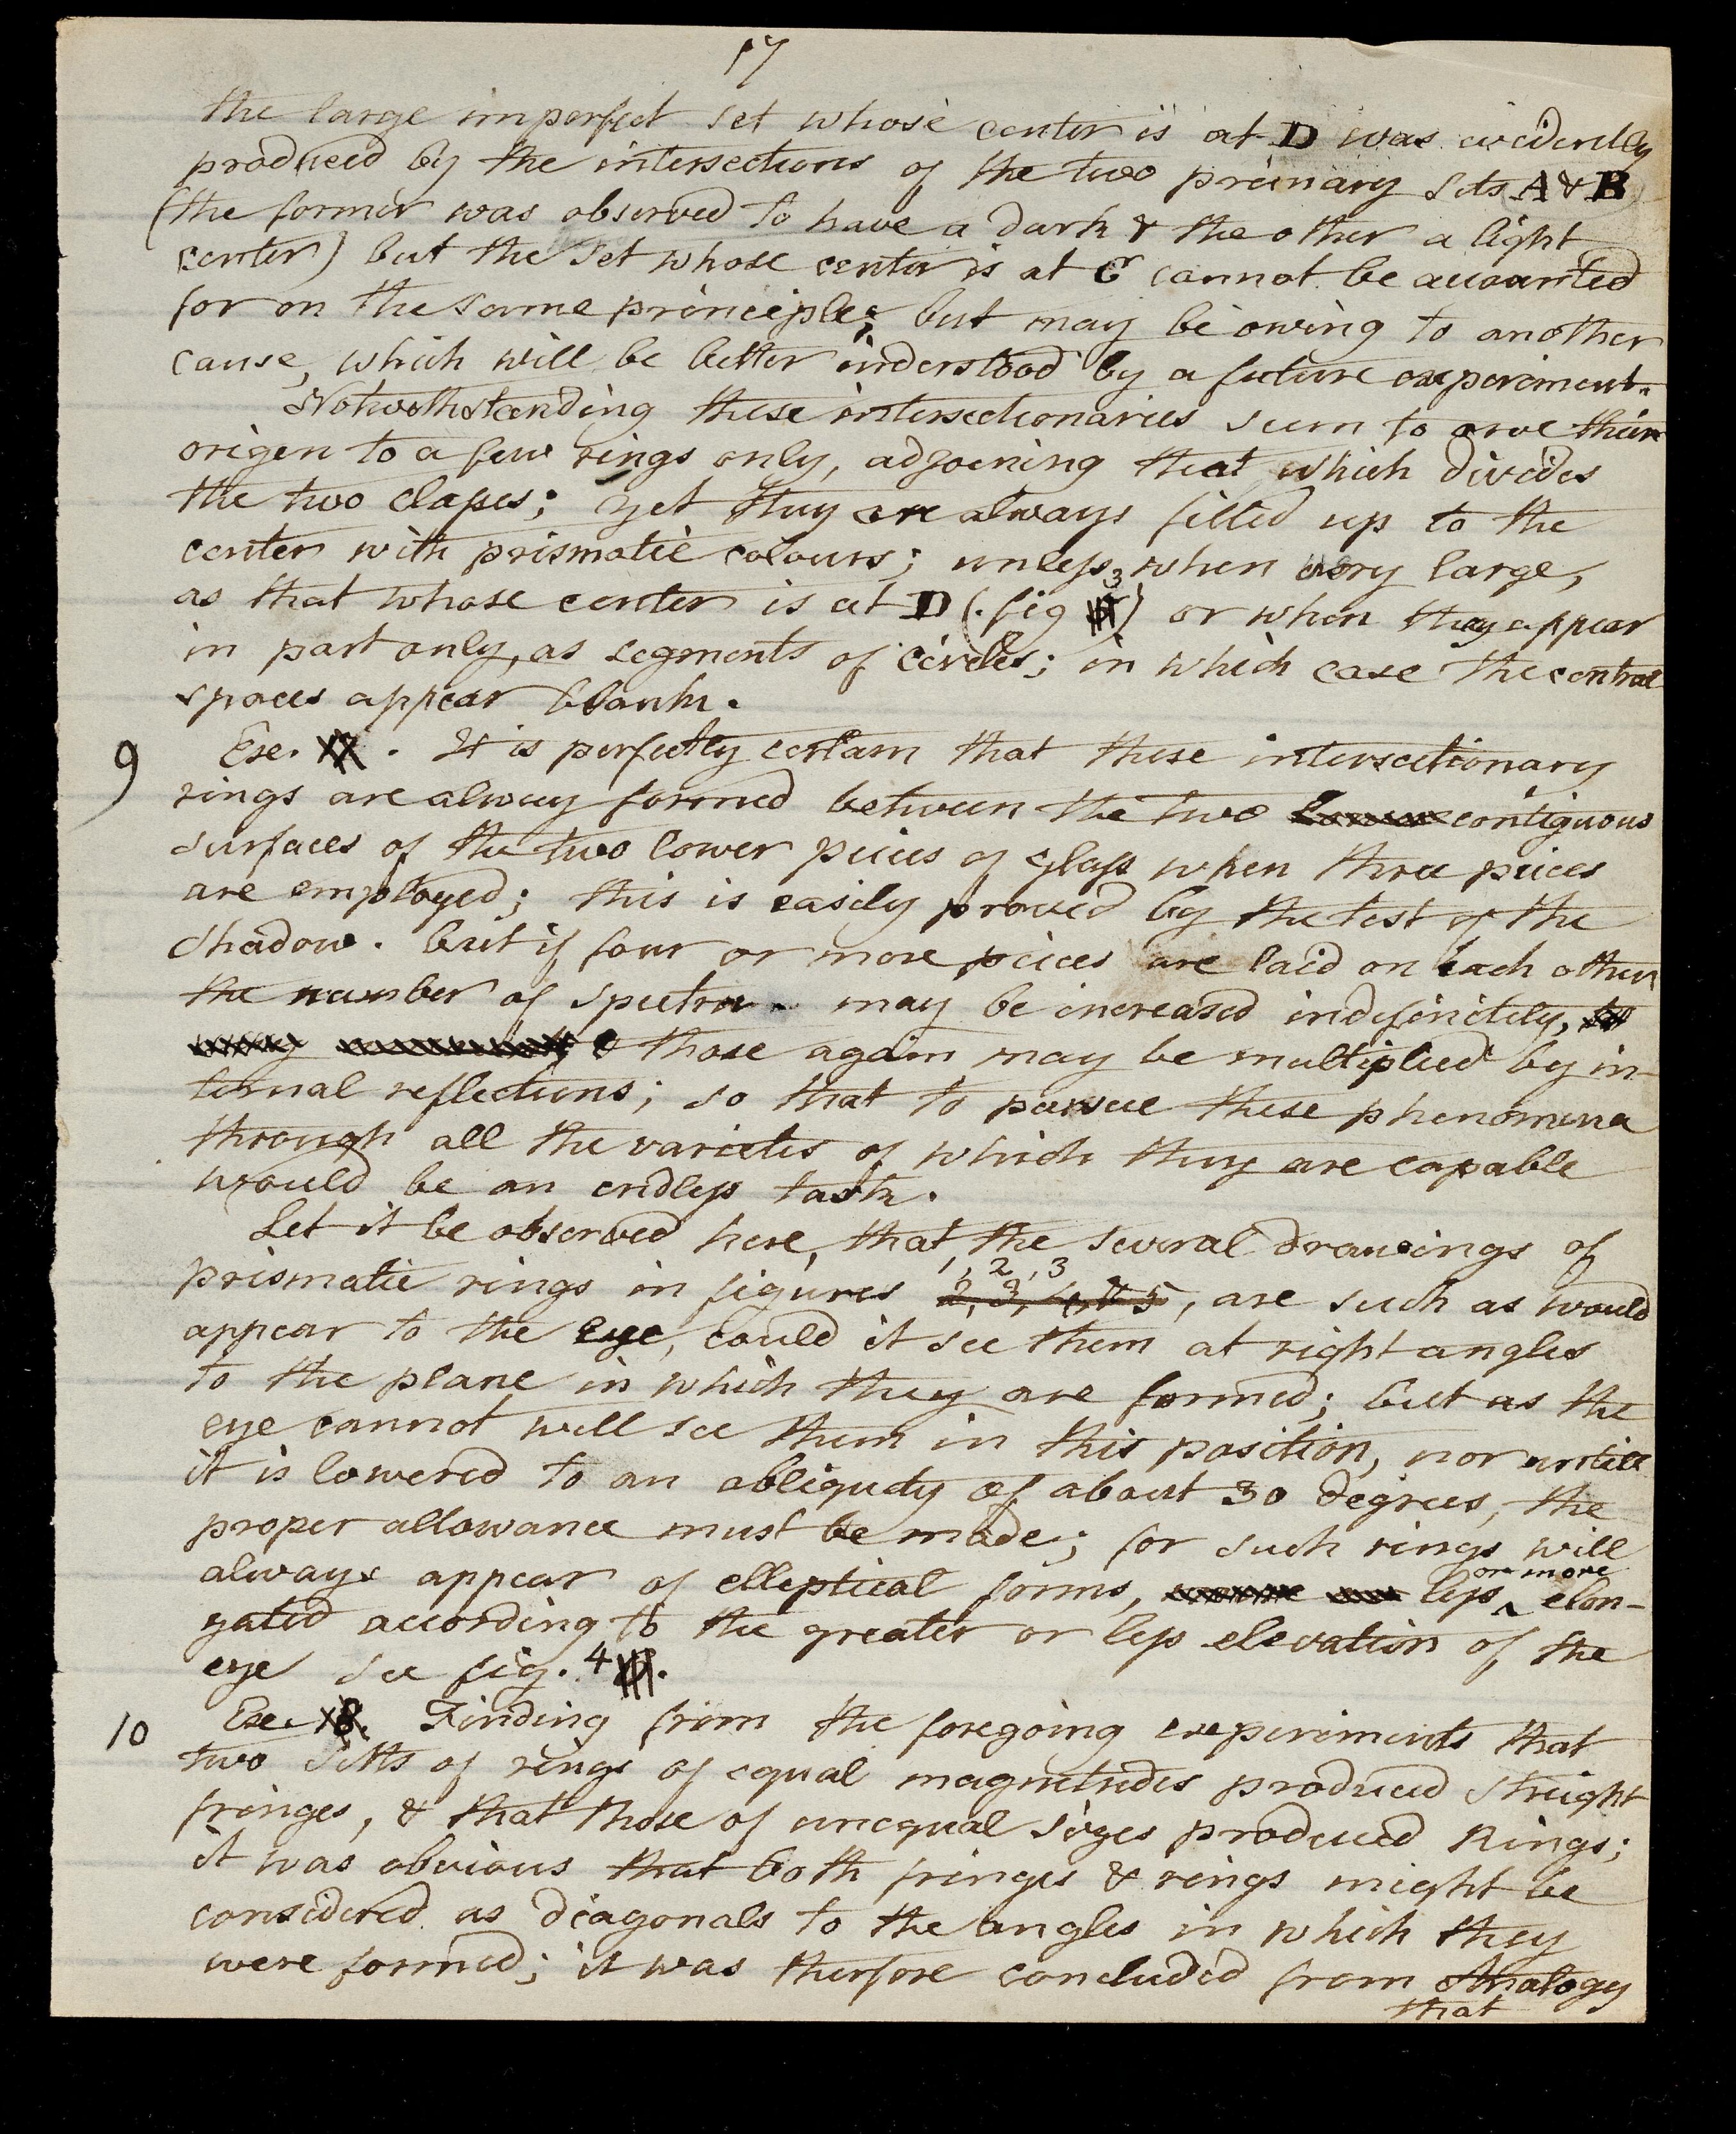 17
the large imperfect set whose center is at D was evidently
produced by the intersections of the two primary sets A & B
(the former was observed to have a dark & the other a light
center) but the set whose center is at C cannot be accounted
for on the same principle; but may be owing to another
cause, which will be better understood by a future experiment.
Notwithstanding these intersectionaries seem to owe their
origen to a few rings only, adjoining that which divides
the two classes; yet they are always filled up to the
center with prismatic colours; unless when very large,
as that whose center is at D (fig 3) or when they appear
in part only, as segments of circles; in which case the central
spaces appear blank.
9 Exe. . It is perfectly certain that these intersectionary
rings are alway formed between the two contiguous
surfaces of the two lower pieces of glass when three pieces
are employed; this is easily proved by the test of the
shadow. but if four or more peices are laid on each other
the number of spectra may be increased indefinitely,
& those again may be multiplied by in-
ternal reflections; so that to pursue these phenomena
through all the varieties of which they are capable
would be an endless task.
Let it be observed here, that the several drawings of
1, 2, 3
prismatic rings in figures 2, 3, 4, & 5, are such as would
appear to the eye, could it see them at right angles
to the plane in which they are formed; but as the
eye cannot well see them in this position, nor untill
it is lowered to an obliquity of about 30 degrees, the
proper allowance must be made; for such rings will
always appear of elliptical forms, less or more elon-
gated according to the greater or less elevation of the
eye see fig. 4.
10 Exe. 18. Finding from the foregoing experiments that
two setts of rings of equal magnitudes produced streight
fringes, & that those of unequal sizes produced Rings;
it was obvious that both fringes & rings might be
considered as diagonals to the angles in which they
were formed; it was therfore concluded from Analogy
that